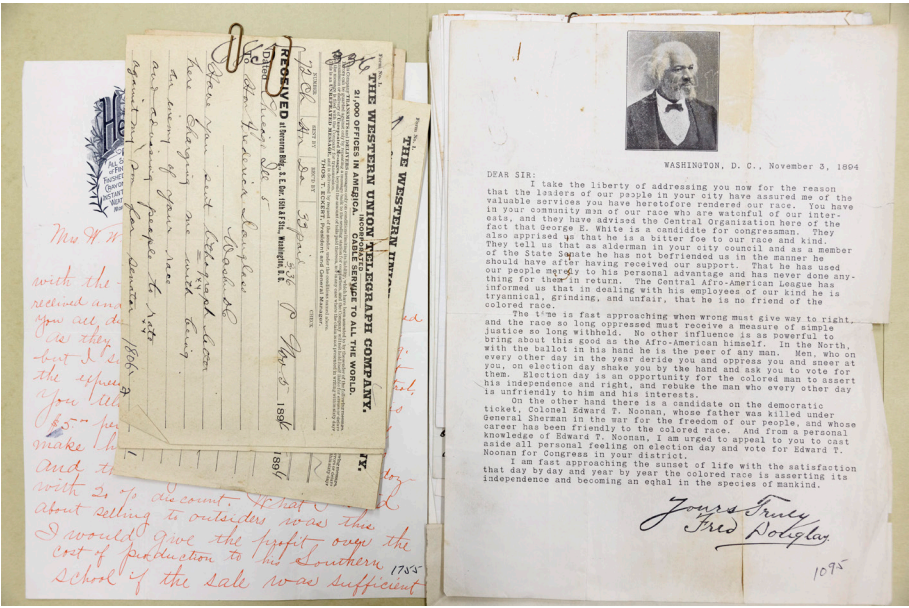 Form No. 1.
THE WESTERN UNION TELEGRAPH COMPANY.
INCORPORATED
21,000 OFFICES IN AMERICA. CABLE SERVICE TO ALL THE WORLD.
THOS. T. ECKERT, President and General Manager.
NUMBER SENT BY REC'D BY CHECK
RECEIVED at Corcoran Bldg., S. E. Cor. 15th & F Sts., Washington, D. C. Nov 5 1894
Dated Chicago Ills 5
To Hon Frederick Douglass
Have you sent lithograph letter
here charging me with being
an enemy of your race
and advising people to vote
against my son for senator
Form No. 1.
THE WESTERN UNION
Mrs. W. W
with the
received and
you all, da
As they
but I s
the expens
You
make h
and th
with 20% discount. What I
about selling to outsiders was this
I would give the profit over the
cost of production to his Southern
school if the sale was sufficient
1755
WASHINGTON, D. C., November 3, 1894
DEAR SIR:
I take the liberty of addressing you now for the reason
that the leaders of our people in your city have assured me of the
valuable services you have heretofore rendered our race. You have
in your community men of our race who are watonful of our inter-
ests, and they have advised the Central Organization here of the
fact that George E. White is a candiddte for congressman. They
also apprised us that he is a bitter foe to our race and kind.
They tell us that as alderman in your city council and as a member
of the State Senate he has not befriended us in the manner he
should have after having received our support. That he has used
our people merely to his personal advantage and has never done any-
thing for them in return. The Central Afro-American League has
informed us that in dealing with his employees of our kind he is
tryannical, grinding, and unfair, that he is no friend of the
colored race.
The time is fast approaching when wrong must give way to right,
and the race so long oppressed must receive a measure of simple
justice so long withheld. No other influence is as powerful to
bring about this good as the Afro-American himself. In the North,
with the ballot in his hand he is the peer of any man. Men, who on
every other day in the year deride you and oppress you and sneer at
you, on election day shake you by the hand and ask you to vote for
them. Election day is an opportunity for the colored man to assert
his independence and right, and rebuke the man who every other day
is unfriendly to him and his interests.
On the other hand there is a candidate on the democratic
ticket, Colonel Edward T. Noonan, whose father was killed under
General Sherman in the war for the freedom of our people, and whose
career has been friendly to the colored race. And from a personal
knowledge of Edward T. Noonan, I am urged to appeal to you to cast
aside all personal feeling on election day and vote for Edward T.
Noonan for Congress in your district.
I am fast approaching the sunset of life with the satisfaction
that day by day and year by year the colored race is asserting its
independence and becoming an eqhal in the species of mankind.
Yours Truly
Fred Douglas
1095